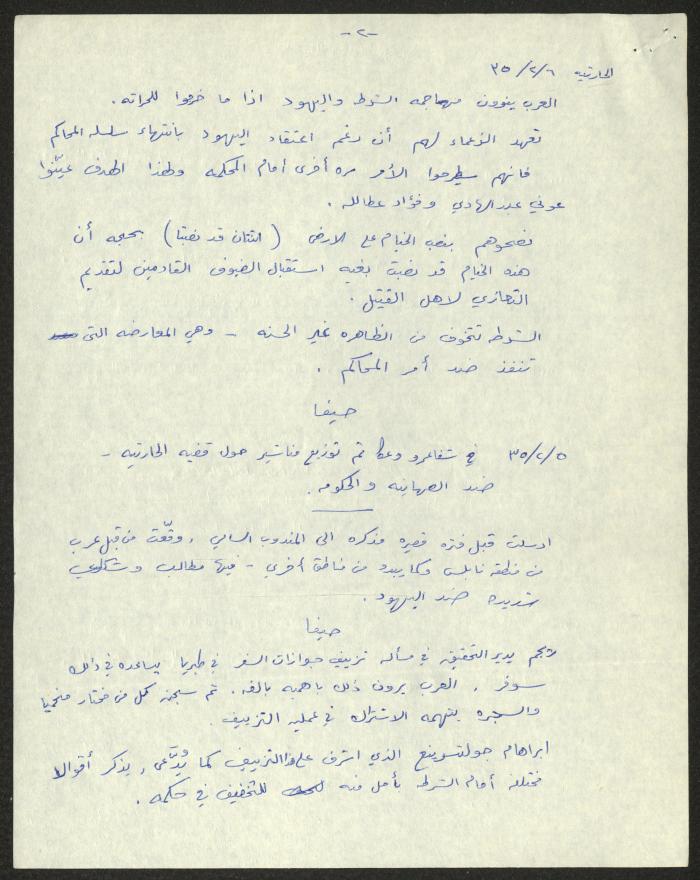 -٢-
الحارثيه ٣٥/٢/٦
العرب ينوون مهاجمه الشرطه واليهود اذا ما خرجوا للحراثه.
تعهد الزعماء لهم أن رغم اعتقاد اليهود بانتهاء سلسله المحاكم
فانهم سيطرحوا الأمر مره أخرى أمام المحكمه ولهذا الهدف عيّنوا
عوني عبد الهادي وفؤاد عطالله.
نصحوهم بنصب الخيام على الارض (اثنتان قد نصبتا) بحجه أن
هذه الخيام قد نصبت بغيه استقبال الضيوف القادمين لتقديم
التعازي لاهل القتيل.
الشرطه تتخوف من الظاهره غير الحسنه - وهي المعارضه التى
تنفذ ضد أمر المحاكم.
حيفا
٣٥/٢/٥ في شفاعمرو وعكا تم توزيع مناشير حول قضيه الحارثيه -
ضد الصهاينه والحكومه.
ارسلت قبل فتره قصيره مذكره الى المندوب السامي، وقّعت من قبل عرب
من منطقه نابلس وكما يبدو من مناطق أخرى - فيها مطالب وشكاوي
شديده ضد اليهود.
حيفا
يدير التحقيق في مسأله تزييف جوازات السفر في طبريا يساعده في ذلك
سوفر، العرب يرون ذلك باهميه بالغه. تم سجن كل من مختار
والسجره بتهمه الاشتراك في عمليه التزييف.
ابراهام جولتسويغ الذي اعترف على هذا التزييف كما يُدّعى، يذكر أقوالا
مختلفه أمام الشرطه بأمل منه للتخفيف في حكمه.